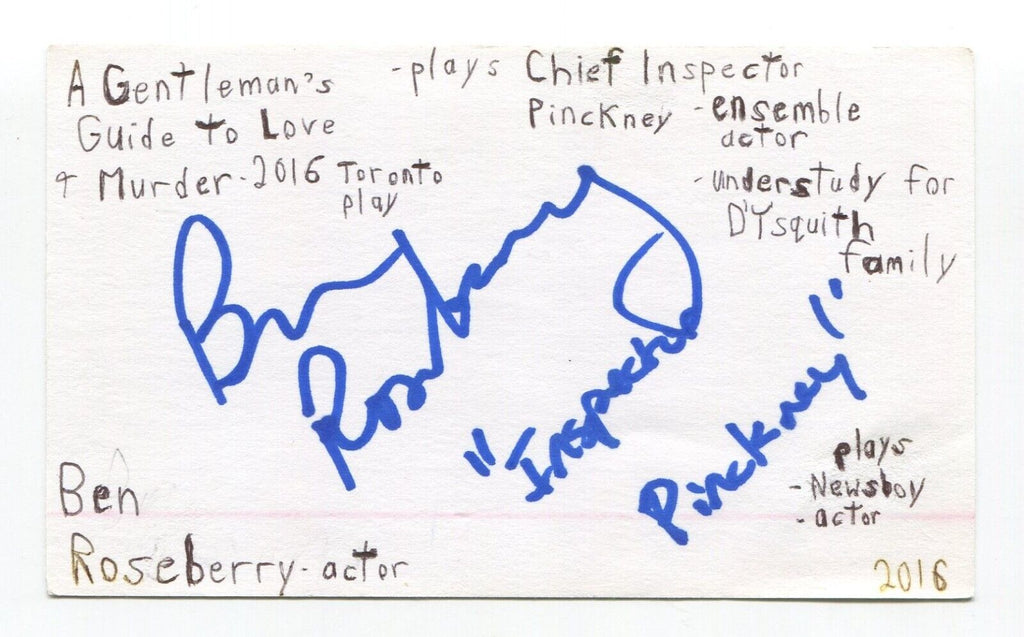 A Gentleman's
Guide to Love
& Murder - 2016 Toronto
play
- plays Chief Inspector
Pinckney - ensemble
actor
- understudy for
D'Ysquith
family
Ben
Roseberry
"Inspector
Pinckney"
plays
- Newsboy
- actor
Ben
Roseberry - actor
2016